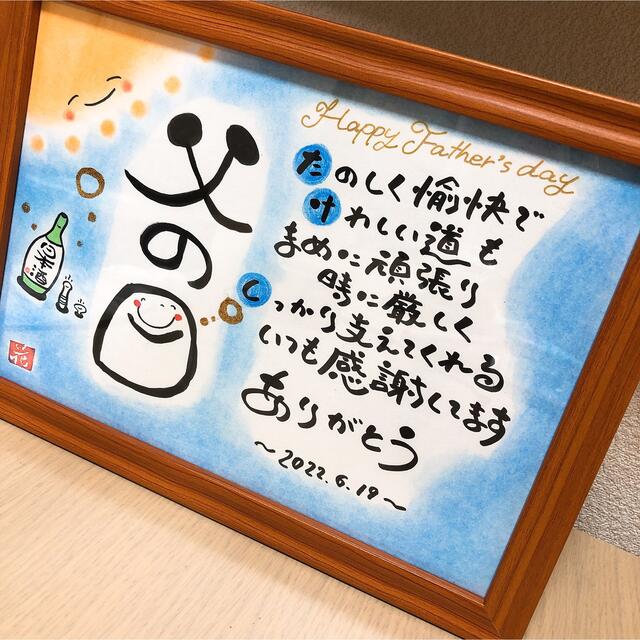 Happy Father's day
父の日
たのしく愉快で
けわしい道も
まめに頑張り
時に厳しく
しっかり支えてくれる
いつも感謝してます
ありがとう
～2022.6.19～
日本酒